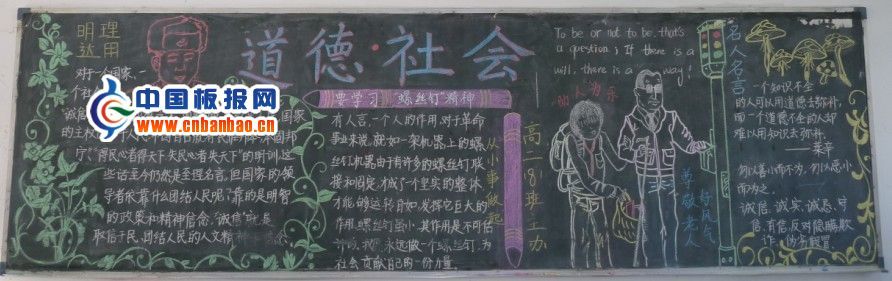 道德·社会
明理
达用
对于一个国家、一
中国板报网
www.cnbanbao.cn
国家
的主权
宁。"得民心者得天下失民心者失天下"的时训,这
些话至今仍然是至理名言,但国家的领
导者依靠什么团结人民呢?靠的是明智
的政策和精神信念。"诚信"就是
取信于民,团结人民的人文精神
要学习"螺丝钉"精神
有人言,一个人的作用,对于革命
事业来说,就如一架机器上的螺
丝钉,机器由于有许多的螺丝钉联
接和固定,才成了个坚实的整体,
才能够运转自如,发挥它巨大的
作用,螺丝钉虽小,其作用是不可估
永远做一个螺丝钉,为
社会贡献自己的一份力量。
从小事做起
高二(8)班主办
To be or not to be, that's
a question; If there is a
will, there is a way!
助人为乐
尊敬老人
好风气
名人名言
一个知识不全
的人可以用道德去弥补,
而一个道德不全的人却
难以用知识去弥补。
勿以善小而不为,勿以恶小
而为之。
诚信、诚实、诚恳、守
信、有信,反对隐瞒欺
诈、伪劣假冒